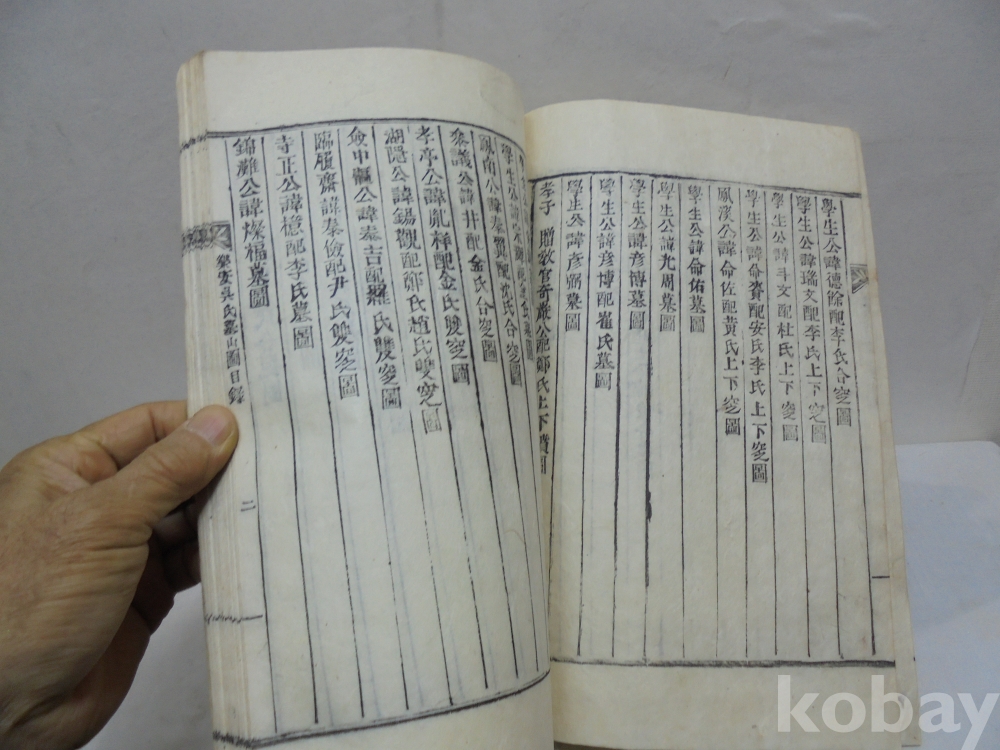 學生公諱德餘配李氏合窆圖
學生公諱瑞文配李氏上下窆圖
學生公諱斗文配杜氏上下窆圖
學生公諱命賚配安氏李氏上下窆圖
鳳溪公諱命佐配黃氏上下窆圖
學生公諱命佑墓圖
學生公諱光周墓圖
學生公諱彦博墓圖
學生公諱彦博配崔氏墓圖
學生公諱彦弼墓圖
孝子 贈敎官奇巖公配鄭氏上下墳圖
學生公諱
鳳南公諱泰賢配沈氏合窆圖
叅議公諱井配金氏合窆圖
孝亭公諱胤梓配金氏雙窆圖
湖隱公諱錫觀配鄭氏趙氏雙窆圖
僉中樞公諱泰吉配羅氏雙窆圖
臨履齋諱泰儉配尹氏雙窆圖
寺正公諱檍配李氏墓圖
錦灘公諱燦福墓圖
樂安吳氏墓山圖目錄 二
kobay